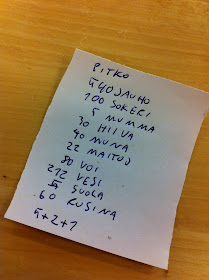 PITKO
540 JAUHO
100 SOKERI
5 MUMMA
30 HIIVA
40 MUNA
22 MAITOJ
80 VOI
212 VESI
5 SUOLA
60 RUSINA
5+2+1